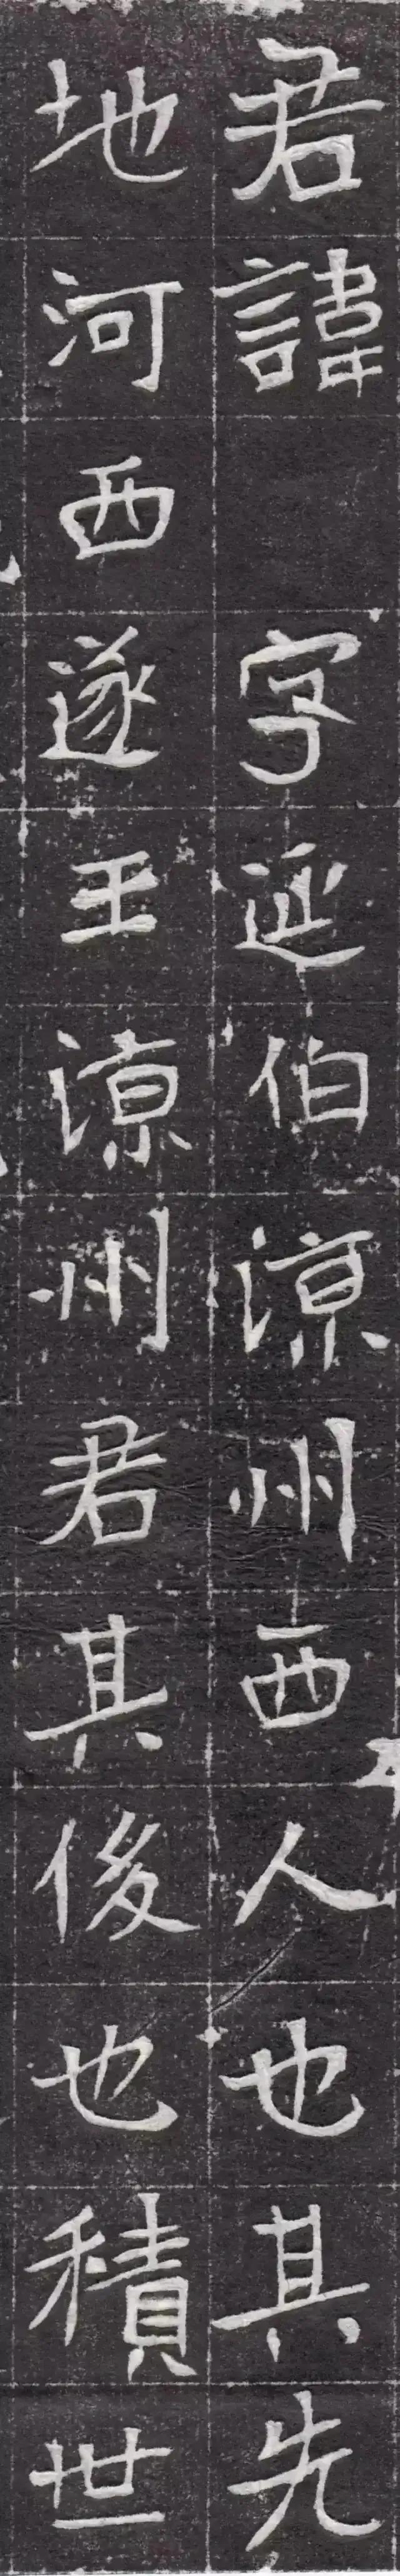 君諱　字延伯涼州西人也其先
地河西遂王涼州君其後也積世